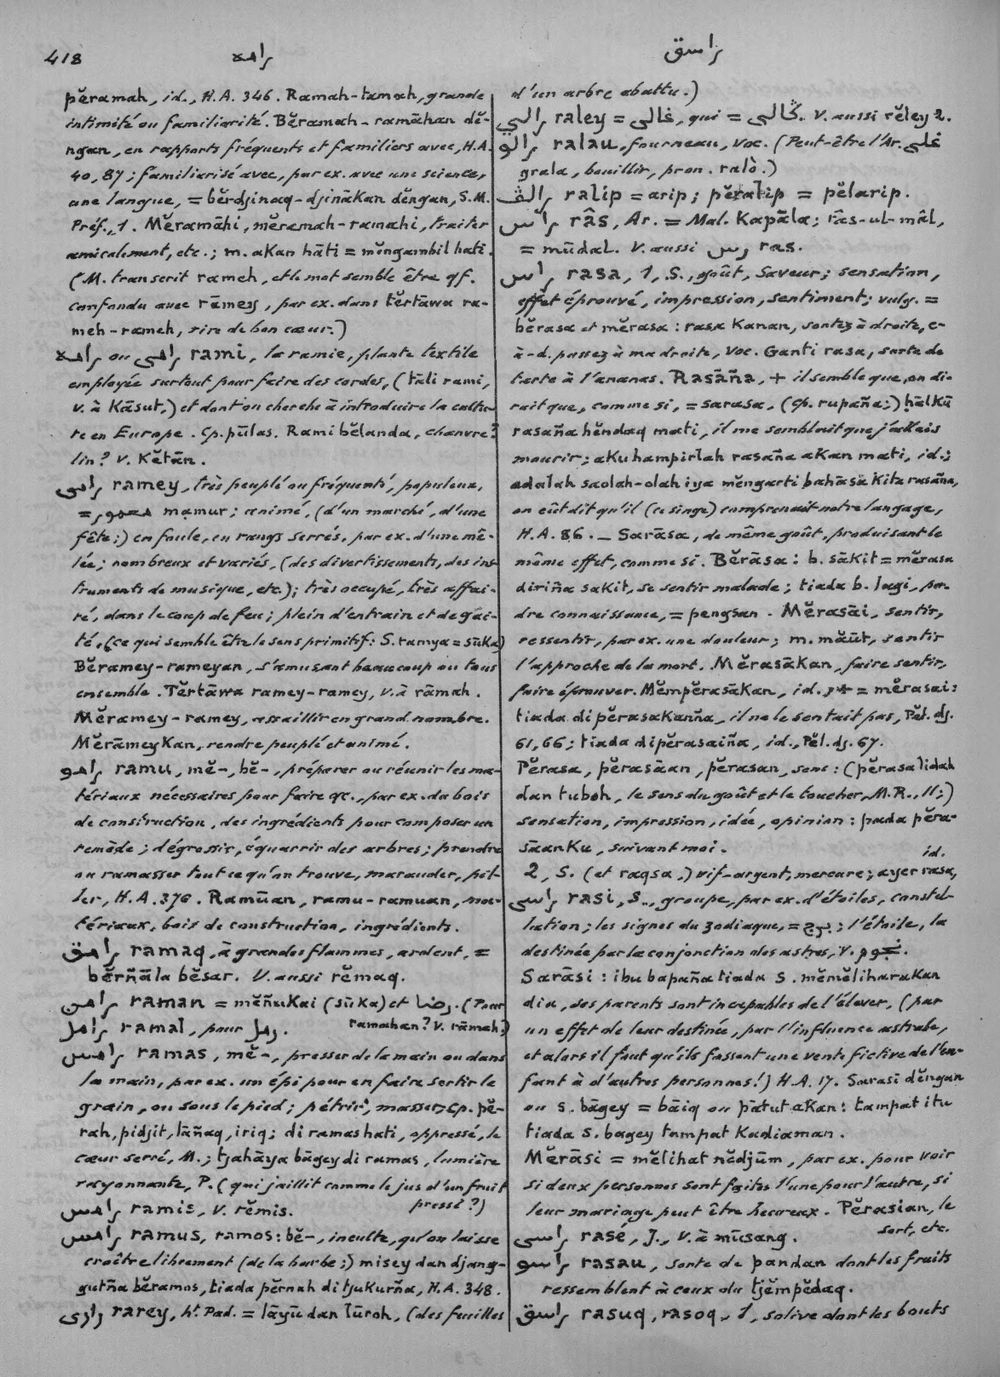 418
رامه
راسق
pĕramah, id., H.A. 346. Ramah-tamah, grande
intimité ou familiarité. Bĕramah-ramāhan dĕ-
ngan, en rapports fréquents et familiers avec, H.A.
40, 87; familiarisé avec, par ex. avec une science,
une langue, = bĕrdjinaq-djinākan dĕngan, S.M.
Préf., 1. Mĕramāhi, mĕramah-ramahi, traiter
amicalement, etc.; m. akan hāti = mĕngambil hati.
(M. transcrit rameh, et le mot semble être qf.
confondu avec rāmey, par ex. dans tĕrtāwa ra-
meh-rameh, rire de bon cœur.)
رامه ou رامى rami, la ramie, plante textile
employée surtout pour faire des cordes, (tāli rami,
v. à Kāsut,) et dont on cherche à introduire la cultu-
re en Europe. Cp. pūlas. Rami bĕlanda, chanvre?
lin? V. Kĕtān.
رامى ramey, très peuplé ou fréquenté, populeux,
= معمور mamur; animé, (d'un marché, d'une
fête:) en foule, en rangs serrés, par ex. d'une mê-
lée; nombreux et variés, (des divertissements, des ins-
truments de musique, etc.); très occupé, très affai-
ré, dans le coup de feu; plein d'entrain et de gai-
té, (ce qui semble être le sens primitif: S. ramya = sūka)
Bĕramey-rameyan, s'amusant beaucoup ou tous
ensemble. Tĕrtāwa ramey-ramey, v. à rāmah.
Mĕramey-ramey, assaillir en grand nombre.
MĕrāmeyKan, rendre peuplé et animé.
رامو ramu, mĕ-, bĕ-, préparer ou réunir les ma-
tériaux nécessaires pour faire qc., par ex. du bois
de construction, des ingrédients pour composer un
remède; dégrossir, équarrir des arbres; prendre
ou ramasser tout ce qu'on trouve, marauder, pil-
ler, H.A. 376. Ramūan, ramu-ramuan, ma-
tériaux, bois de construction, ingrédients.
رامق ramaq, à grandes flammes, ardent, =
bĕrñāla bĕsar. V. aussi rĕmaq.
رامن raman = mĕñukai (sūka) et رضا. (Pour
ramahan? v. rāmah)
رامل ramal, pour رمل.
رامس ramas, mĕ-, presser de la main ou dans
la main, par ex. un épi pour en faire sortir le
grain, ou sous le pied; pétrir, masser. Cp. pĕ-
rah, pidjit, lāñaq, iriq; di ramas hati, oppressé, le
cœur serré, M.; tjahāya bāgey di ramas, lumière
rayonnante, P. (qui jaillit comme le jus d'un fruit
pressé?)
رامس ramis, v. rĕmis.
رامس ramus, ramos: bĕ-, inculte, qu'on laisse
croître librement (de la barbe:) misey dan djang-
gutña bĕramos, tiada pĕrnah di tjukurña, H.A. 348.
راري rarey, ht Pad. = lāyū dan lūroh, (des feuilles
d'un arbre abattu.)
رالي raley = غالى, qui = ڬالى. V. aussi rĕley 2.
رالو ralau, fourneau, Voc. (Peut-être l'Ar. غلى
grala, bouillir, pron. ralò.)
رالڤ ralip = arip; pĕralip = pĕlarip.
راس râs, Ar. = Mal. Kapāla; rās-ul-māl,
= mūdal. V. aussi رس ras.
راس rasa, 1, S., goût, saveur; sensation,
effet éprouvé, impression, sentiment; vulg. =
bĕrasa et mĕrasa: rasa Kanan, sentez à droite, c-
à-d. passez à ma droite, Voc. Ganti rasa, sorte de
tarte à l'ananas. Rasāña, + il semble que, on di-
rait que, comme si, = sarasa, (Cp. rupaña:) hālKū
rasaña hĕndaq mati, il me semblait que j'allais
mourir; aku hampirlah rasaña akan mati, id.;
adalah saolah-olah iya mĕngarti bahāsā Kita rasāña,
on eût dit qu'il (ce singe) comprenait notre langage,
H.A. 86. _ Sarāsa, de même goût, produisant le
même effet, comme si. Bĕrāsa: b. sākit = mĕrasa
diriña sakit, se sentir malade; tiada b. lagi, per-
dre connaissance, = pengsan. Mĕrasāi, sentir,
ressentir, par ex. une douleur; m. māūt, sentir
l'approche de la mort. MĕrasāKan, faire sentir,
faire éprouver. MĕmpĕrasāKan, id. = mĕrasai:
tiada di pĕrasaKanña, il ne le sentait pas, Pĕl. dj.
61, 66; tiada dipĕrasaiña, id., Pĕl. dj. 67.
Pĕrasa, pĕrasāan, pĕrasan, sens: (pĕrasa lidah
dan tuboh, le sens du goût et le toucher, M.R., 11;)
sensation, impression, idée, opinion: pada pĕra-
sāanKu, suivant moi.
2, S. (et raqsa,) vif-argent, mercure; ayer rasa, id.
راسى rasi, S., groupe, par ex. d'étoiles, constel-
lation; les signes du zodiaque, = برج; l'étoile, la
destinée par la conjonction des astres, V. نجوم.
Sarāsi: ibu bapaña tiada s. mĕmĕliharaKan
dia, ses parents sont incapables de l'élever, (par
un effet de leur destinée, par l'influence astrale,
et alors il faut qu'ils fassent une vente fictive de l'en-
fant à d'autres personnes!) H.A. 17. Sarasi dĕngan
ou s. bāgey = bāiq ou pātut akan: tampat itu
tiada s. bagey tampat Kadiaman.
Mĕrāsi = mĕlihat nĕdjūm, par ex. pour voir
si deux personnes sont faites l'une pour l'autre, si
leur mariage peut être heureux. Pĕrasian, le
sort, etc.
راسى rasé, J., v. à mūsang.
راسو rasau, sorte de pandan dont les fruits
ressemblent à ceux du tjĕmpĕdaq.
راسق rasuq, rasoq, 1, solive dont les bouts